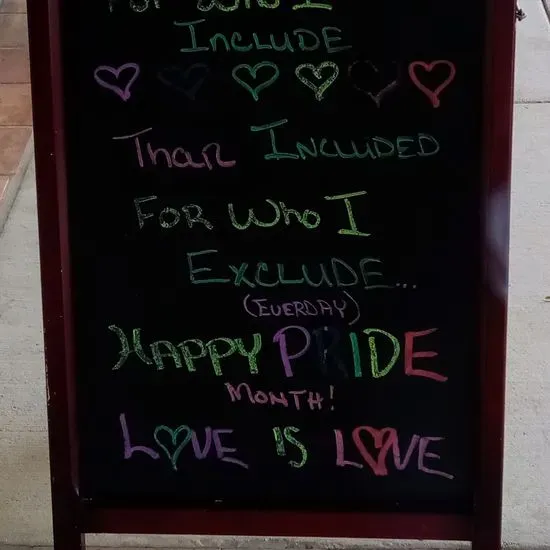 For Who I
Include
Than Included
For Who I
Exclude...
(Everday)
Happy PRIDE
Month!
Love is Love